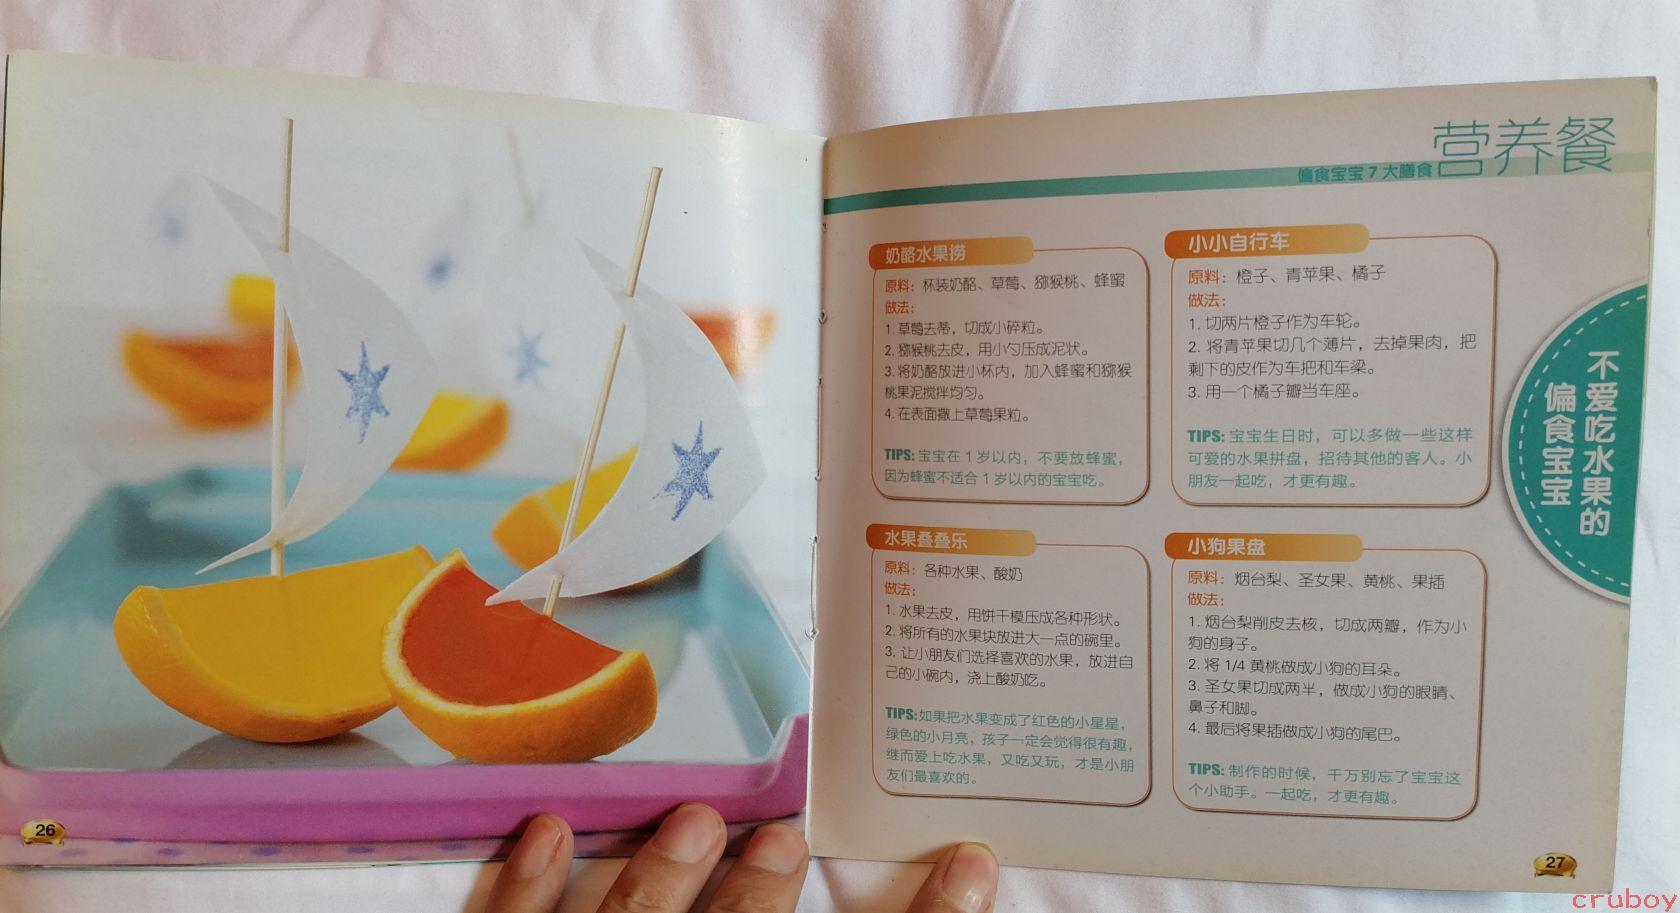 26
营养餐
偏食宝宝7大膳食
不爱吃水果的
偏食宝宝
奶酪水果捞
原料：杯装奶酪、草莓、猕猴桃、蜂蜜
做法：
1. 草莓去蒂，切成小碎粒。
2. 猕猴桃去皮，用小勺压成泥状。
3. 将奶酪放进小杯内，加入蜂蜜和猕猴
桃果泥搅拌均匀。
4. 在表面撒上草莓果粒。
TIPS: 宝宝在 1 岁以内，不要放蜂蜜，
因为蜂蜜不适合 1 岁以内的宝宝吃。
小小自行车
原料：橙子、青苹果、橘子
做法：
1. 切两片橙子作为车轮。
2. 将青苹果切几个薄片，去掉果肉，把
剩下的皮作为车把和车梁。
3. 用一个橘子瓣当车座。
TIPS: 宝宝生日时，可以多做一些这样
可爱的水果拼盘，招待其他的客人。小
朋友一起吃，才更有趣。
水果叠叠乐
原料：各种水果、酸奶
做法：
1. 水果去皮，用饼干模压成各种形状。
2. 将所有的水果块放进大一点的碗里。
3. 让小朋友们选择喜欢的水果，放进自
己的小碗内，浇上酸奶吃。
TIPS: 如果把水果变成了红色的小星星，
绿色的小月亮，孩子一定会觉得很有趣，
继而爱上吃水果，又吃又玩，才是小朋
友们最喜欢的。
小狗果盘
原料：烟台梨、圣女果、黄桃、果插
做法：
1. 烟台梨削皮去核，切成两瓣，作为小
狗的身子。
2. 将 1/4 黄桃做成小狗的耳朵。
3. 圣女果切成两半，做成小狗的眼睛、
鼻子和脚。
4. 最后将果插做成小狗的尾巴。
TIPS: 制作的时候，千万别忘了宝宝这
个小助手。一起吃，才更有趣。
27
cruboy